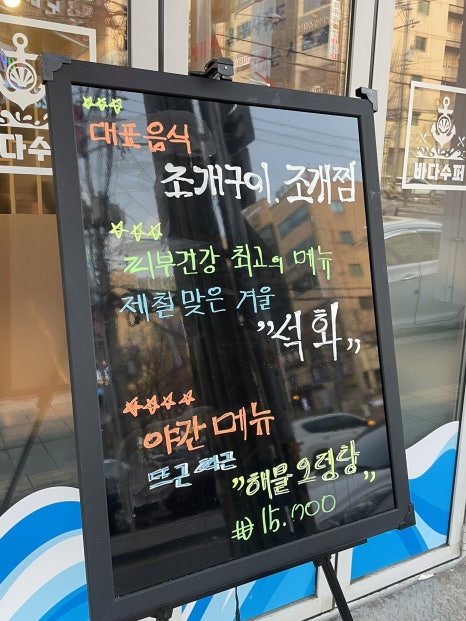 대표음식
조개구이, 조개찜
피부건강 최고의 메뉴
제철맞은 겨울
"석화"
야간 메뉴
뜨끈
"해물오뎅탕"
₩15.000
다수
바다수퍼